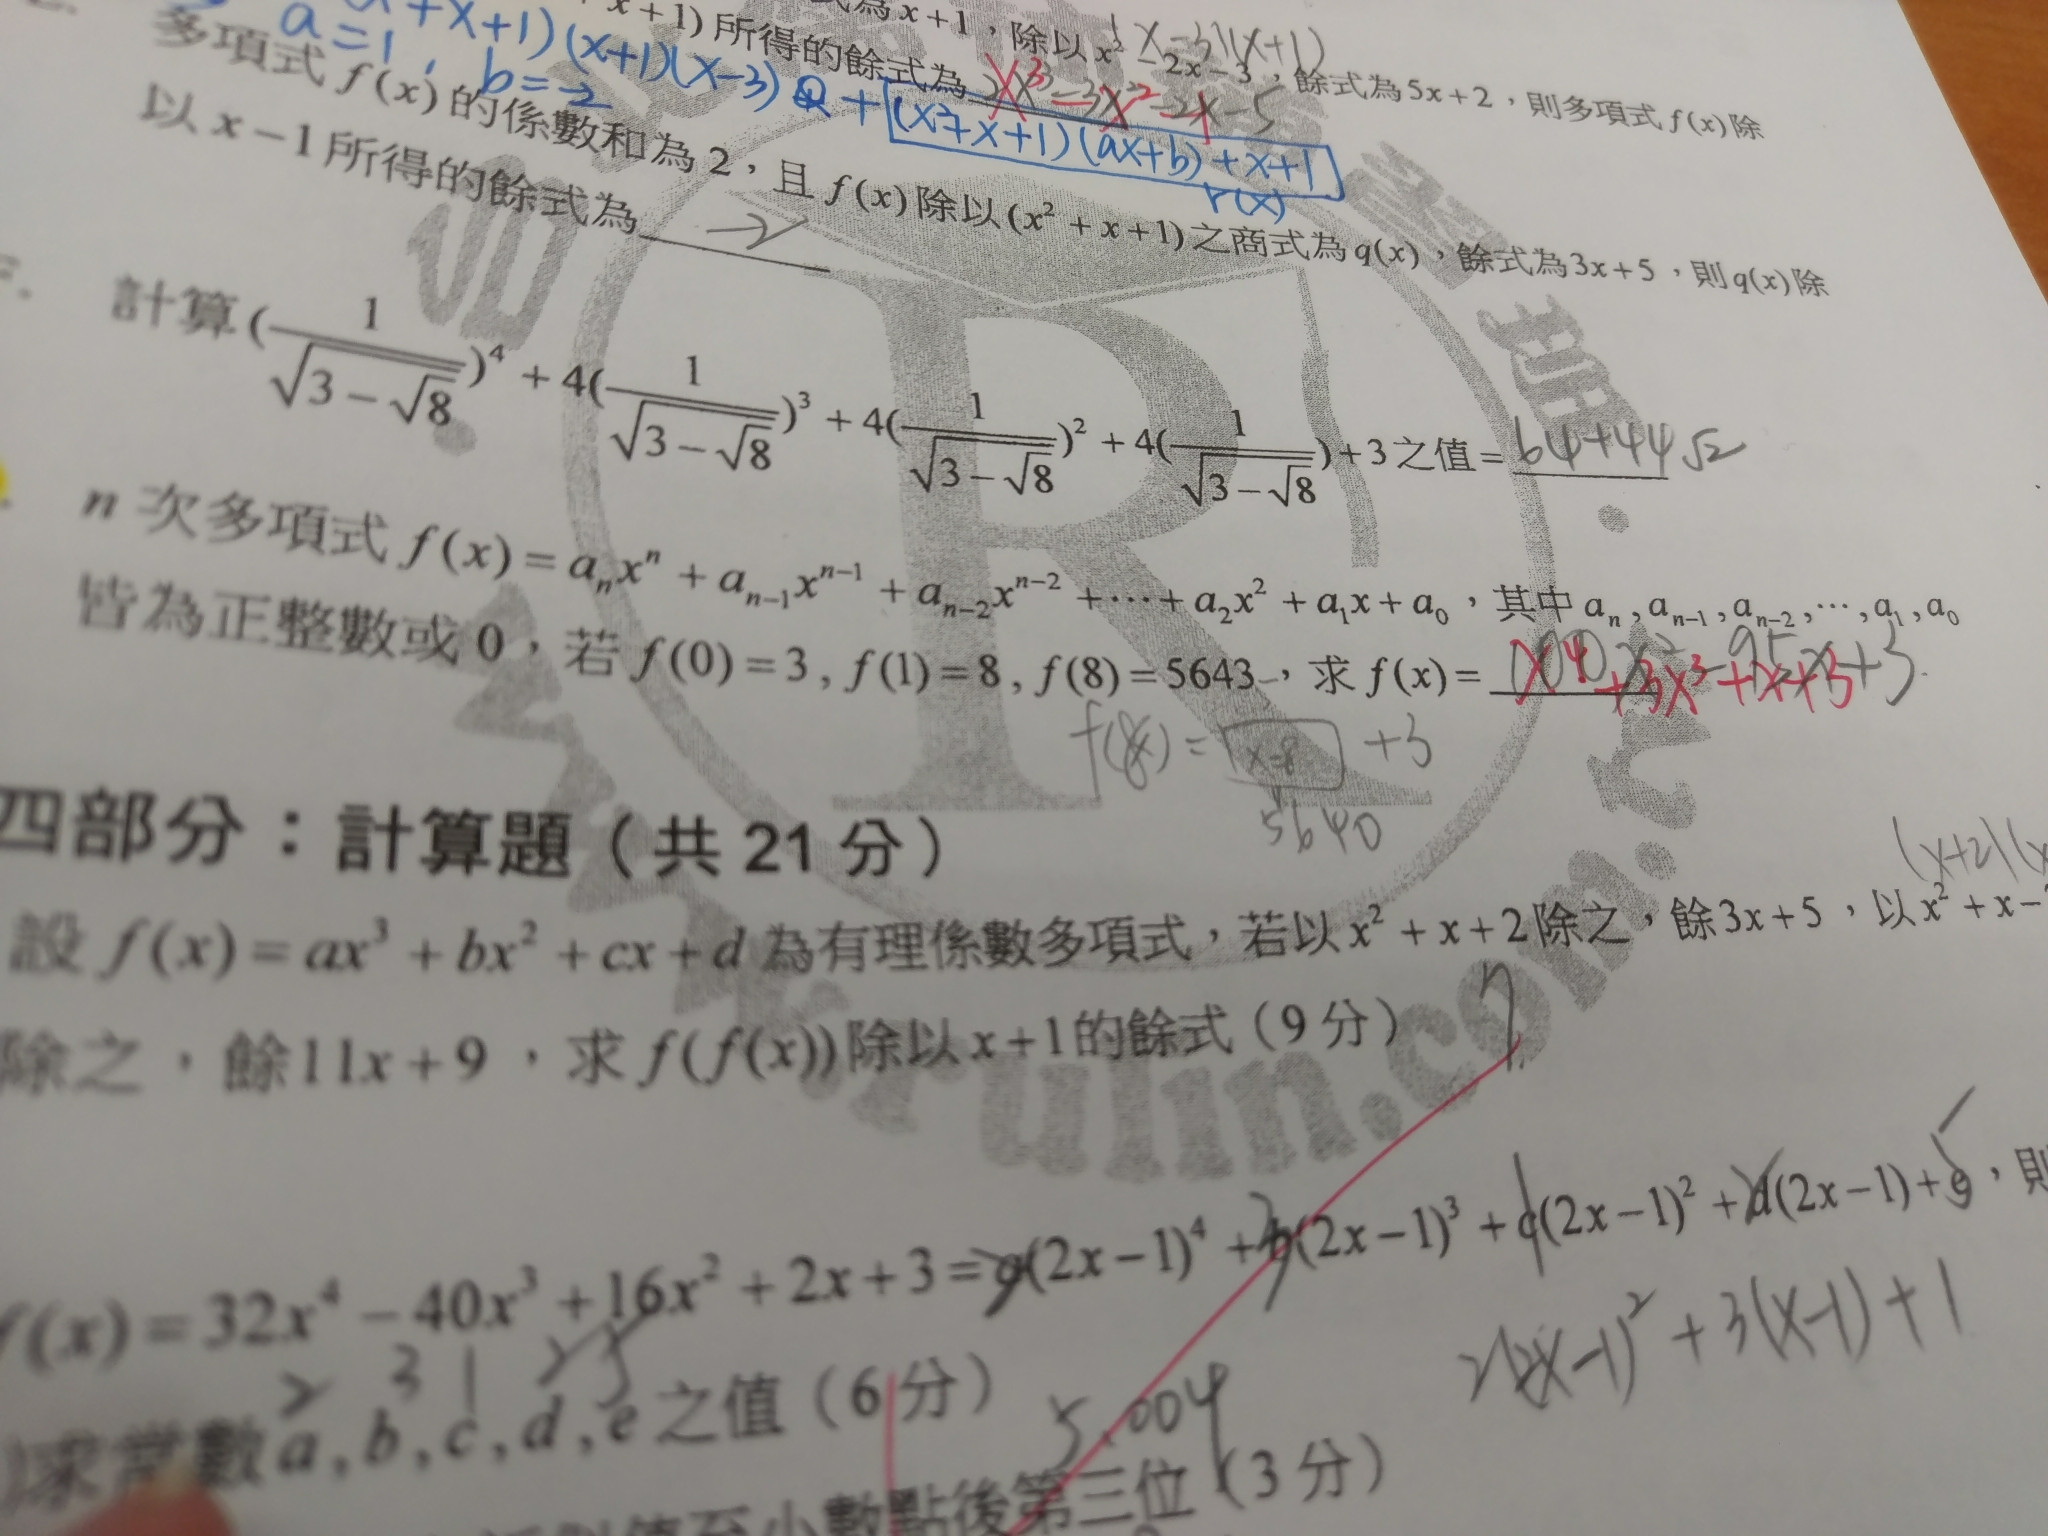 x+1)所得的餘式為 式為x+1,除以x²-2x-3,餘式為5x+2,則多項式f(x)除
(x-3)(x+1)
+x+1)(x+1)(x-3)Q+(x²+x+1)(ax+b)+x+1
r(x)
a=1, b=-2
x³-x²-x-1
多項式f(x)的係數和為2,且f(x)除以(x²+x+1)之商式為q(x),餘式為3x+5,則q(x)除
以x-1所得的餘式為 -2
計算(1/√(3-√8))⁴+4(1/√(3-√8))³+4(1/√(3-√8))²+4(1/√(3-√8))+3之值=64+44√2
n次多項式f(x)=aₙxⁿ+aₙ₋₁xⁿ⁻¹+aₙ₋₂xⁿ⁻²+⋯+a₂x²+a₁x+a₀,其中aₙ,aₙ₋₁,aₙ₋₂,⋯,a₁,a₀
皆為正整數或0,若f(0)=3,f(1)=8,f(8)=5643,求f(x)=x⁴+3x³+x+3
100x²-95x+3
f(8)=x=8+3
5640
四部分:計算題(共21分)
(x+2)(x
設f(x)=ax³+bx²+cx+d為有理係數多項式,若以x²+x+2除之,餘3x+5,以x²+x-2
除之,餘11x+9,求f(f(x))除以x+1的餘式(9分)
f(x)=32x⁴-40x³+16x²+2x+3=a(2x-1)⁴+b(2x-1)³+c(2x-1)²+d(2x-1)+e,則
2(2x-1)²+3(x-1)+1
2 3 1 2 5
)求常數a,b,c,d,e之值(6分)
5.004
值至小數點後第三位(3分)
R
rulin.com.